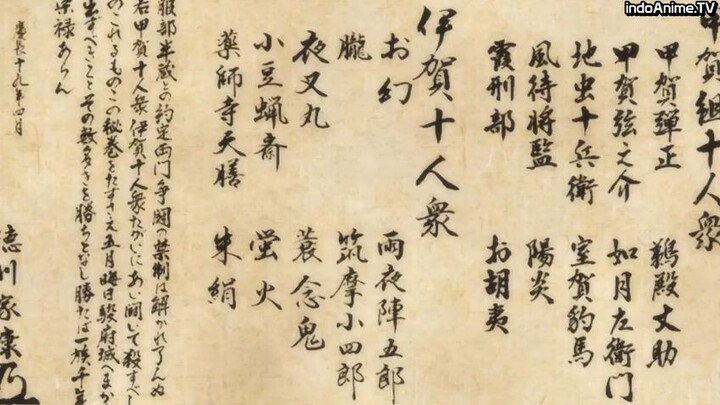 indoAnime.TV
甲賀組十人衆
甲賀彈正　鵜殿丈助
甲賀弦之介　如月左衛門
地虫十兵衛　室賀豹馬
風待将監　陽炎
霞刑部　お胡夷
伊賀十人衆
お幻　雨夜陣五郎
朧　筑摩小四郎
夜叉丸　蓑念鬼
小豆蝋斎　螢火
薬師寺天膳　朱絹
服部半蔵との約定両門争闘の禁制は解かれ了んぬ
右甲賀十人衆伊賀十人衆たがいにあい闘いて殺すべし
のこれるものこの秘巻をたずさえ五月晦日駿府城へまか
出ずべきことその数多きを勝ちとなし勝たば一族千年
栄禄あらん
慶長十九年四月
徳川家康